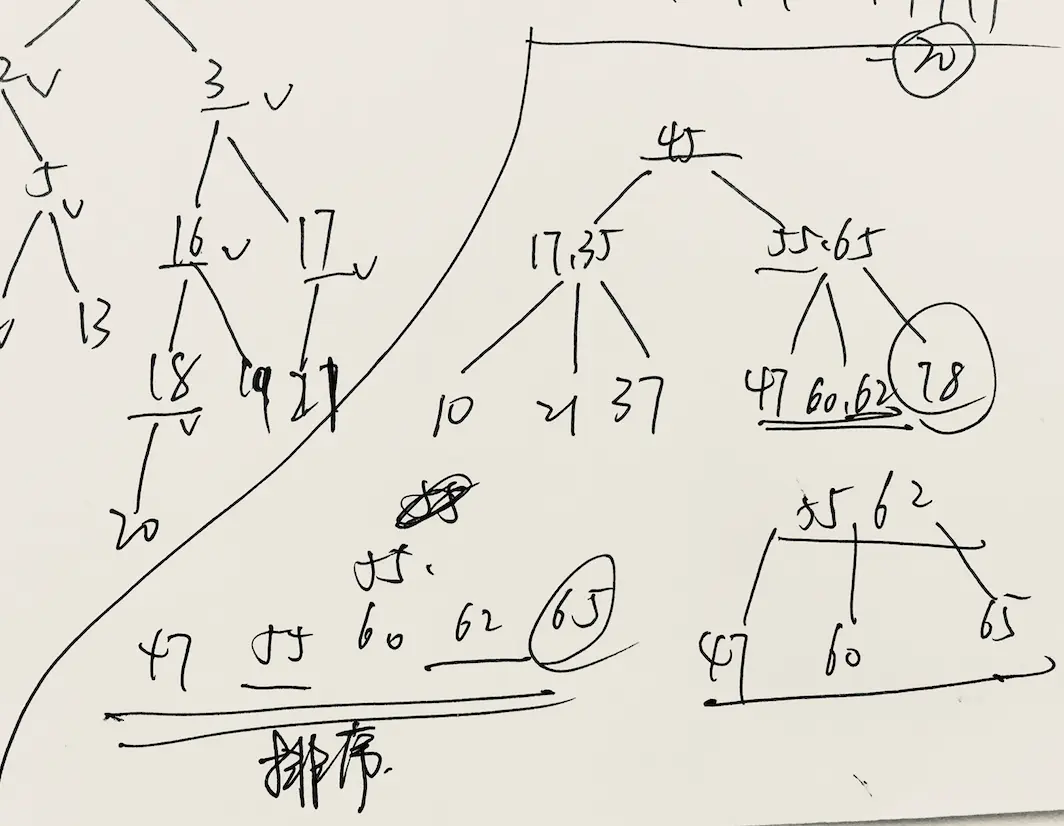 20
2 v
3 v
45
5 v
16 v
17 v
17,35
55.65
13
18 v
19
21
10
21
37
47
60.62
78
20
55 62
55.
47
55
60
62
65
47
60
65
排序.